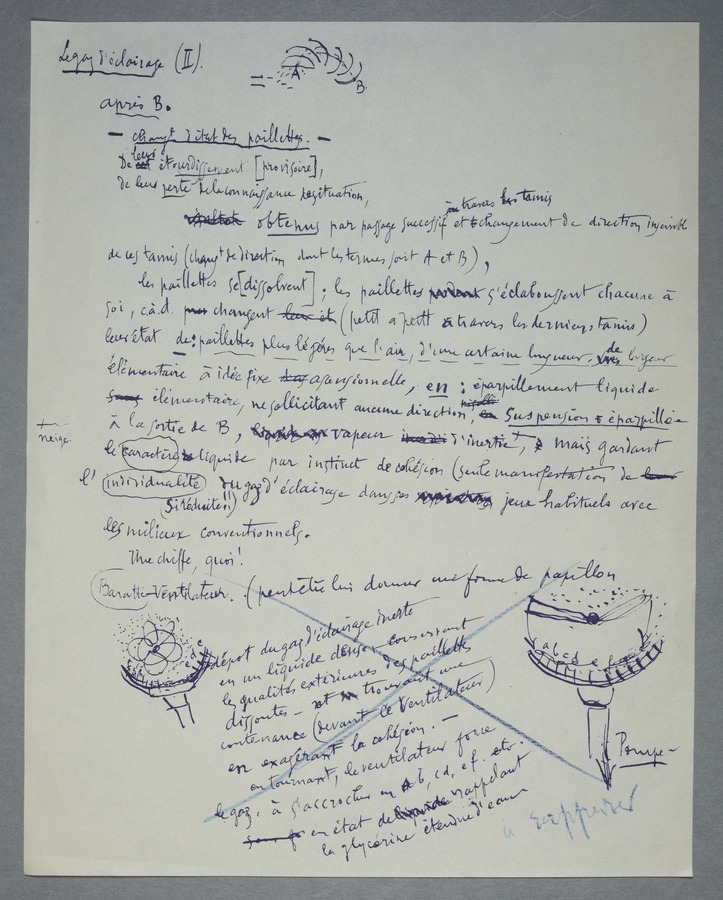 Le gaz d'éclairage (II).
A
B
après B.
— changt d'état des paillettes. —
De leur étourdissement [provisoire],
de leur perte de la connaissance de situation,
à travers les tamis
obtenus par passage successif et changement de direction insensible
de ces tamis (changt de direction dont les termes soit A et B),
les paillettes se [dissolvent] ; les paillettes s'éclaboussent chacune à
soi, c.à.d. changent (petit à petit à travers les derniers tamis)
leur état de : paillettes plus légères que l'air, d'une certaine longueur, de largeur
élémentaire à idée fixe ascensionnelle, en : éparpillement liquide
élémentaire, ne sollicitant aucune direction, suspension éparpillée
à la sortie de B, vapeur d'inertie +, mais gardant
+ —
neige.
le caractère liquide par instinct de cohésion (seule manifestation de
l'individualité du gaz d'éclairage dans ses jeux habituels avec
(si réduite !!)
les milieux conventionnels.
Une chiffe, quoi !
Baratte-Ventilateur. (peut être lui donner une forme de papillon
dépôt du gaz d'éclairage inerte
en un liquide dense conservant
les qualités extérieures des paillettes
dissoutes — et trouvant une
contenance (devant le Ventilateur)
en exagérant la cohésion. —
en tournant, le ventilateur force
le gaz à s'accrocher en ab, cd, ef. etc.
en état de liquide rappelant
la glycérine étendue d'eau
a b c d e f
Pompe —
à supprimer